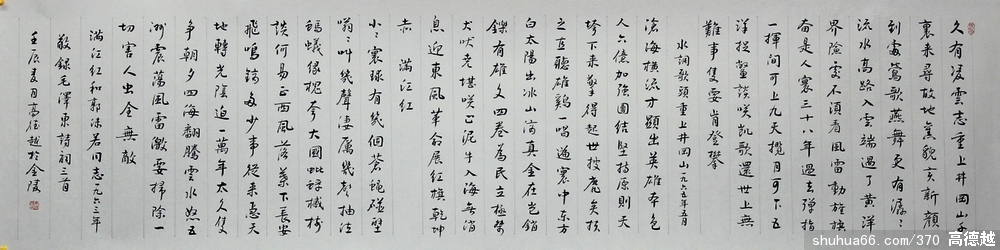 久有凌雲志重上井岡山千
裏来尋故地舊貌変新顔
到處鶯歌燕舞更有潺々
流水高路入雲端過了黄洋
界險處不須看風雷動旌旗
奮是人寰三十八年過去彈指
一揮間可上九天攬月可下五
洋捉鱉談咲凱歌還世上無
難事隻要肯登攀
水調歌頭重上井岡山一九六五年五月
滄海橫流方顯出英雄本色
人六億加強團結堅持原則天
垮下来擎得起世披靡矣扶
之直聽雄鷄一唱遍寰中東方
白太陽出冰山滴真金在豈銷
鑠有雄文四卷為民立極桀
犬吠堯堪咲止泥牛入海無消
息迎東風革命展紅旗乾坤
赤 滿江紅
小々寰球有幾個蒼蠅碰壁
嗡々叫幾聲凄厲幾聲抽泣
螞蟻緣槐夸大國蚍蜉撼樹
談何易正西風落葉下長安
飛鳴鏑多少事從来急天
地轉光陰迫一萬年太久隻
争朝夕四海翻騰雲水怒五
洲震蕩風雷激要掃除一
切害人虫全無敵
滿江紅和郭沫若同志一九六三年
敬録毛澤東詩詞三首
壬辰春月高德越於金陵
shuhua66.com/370 高德越